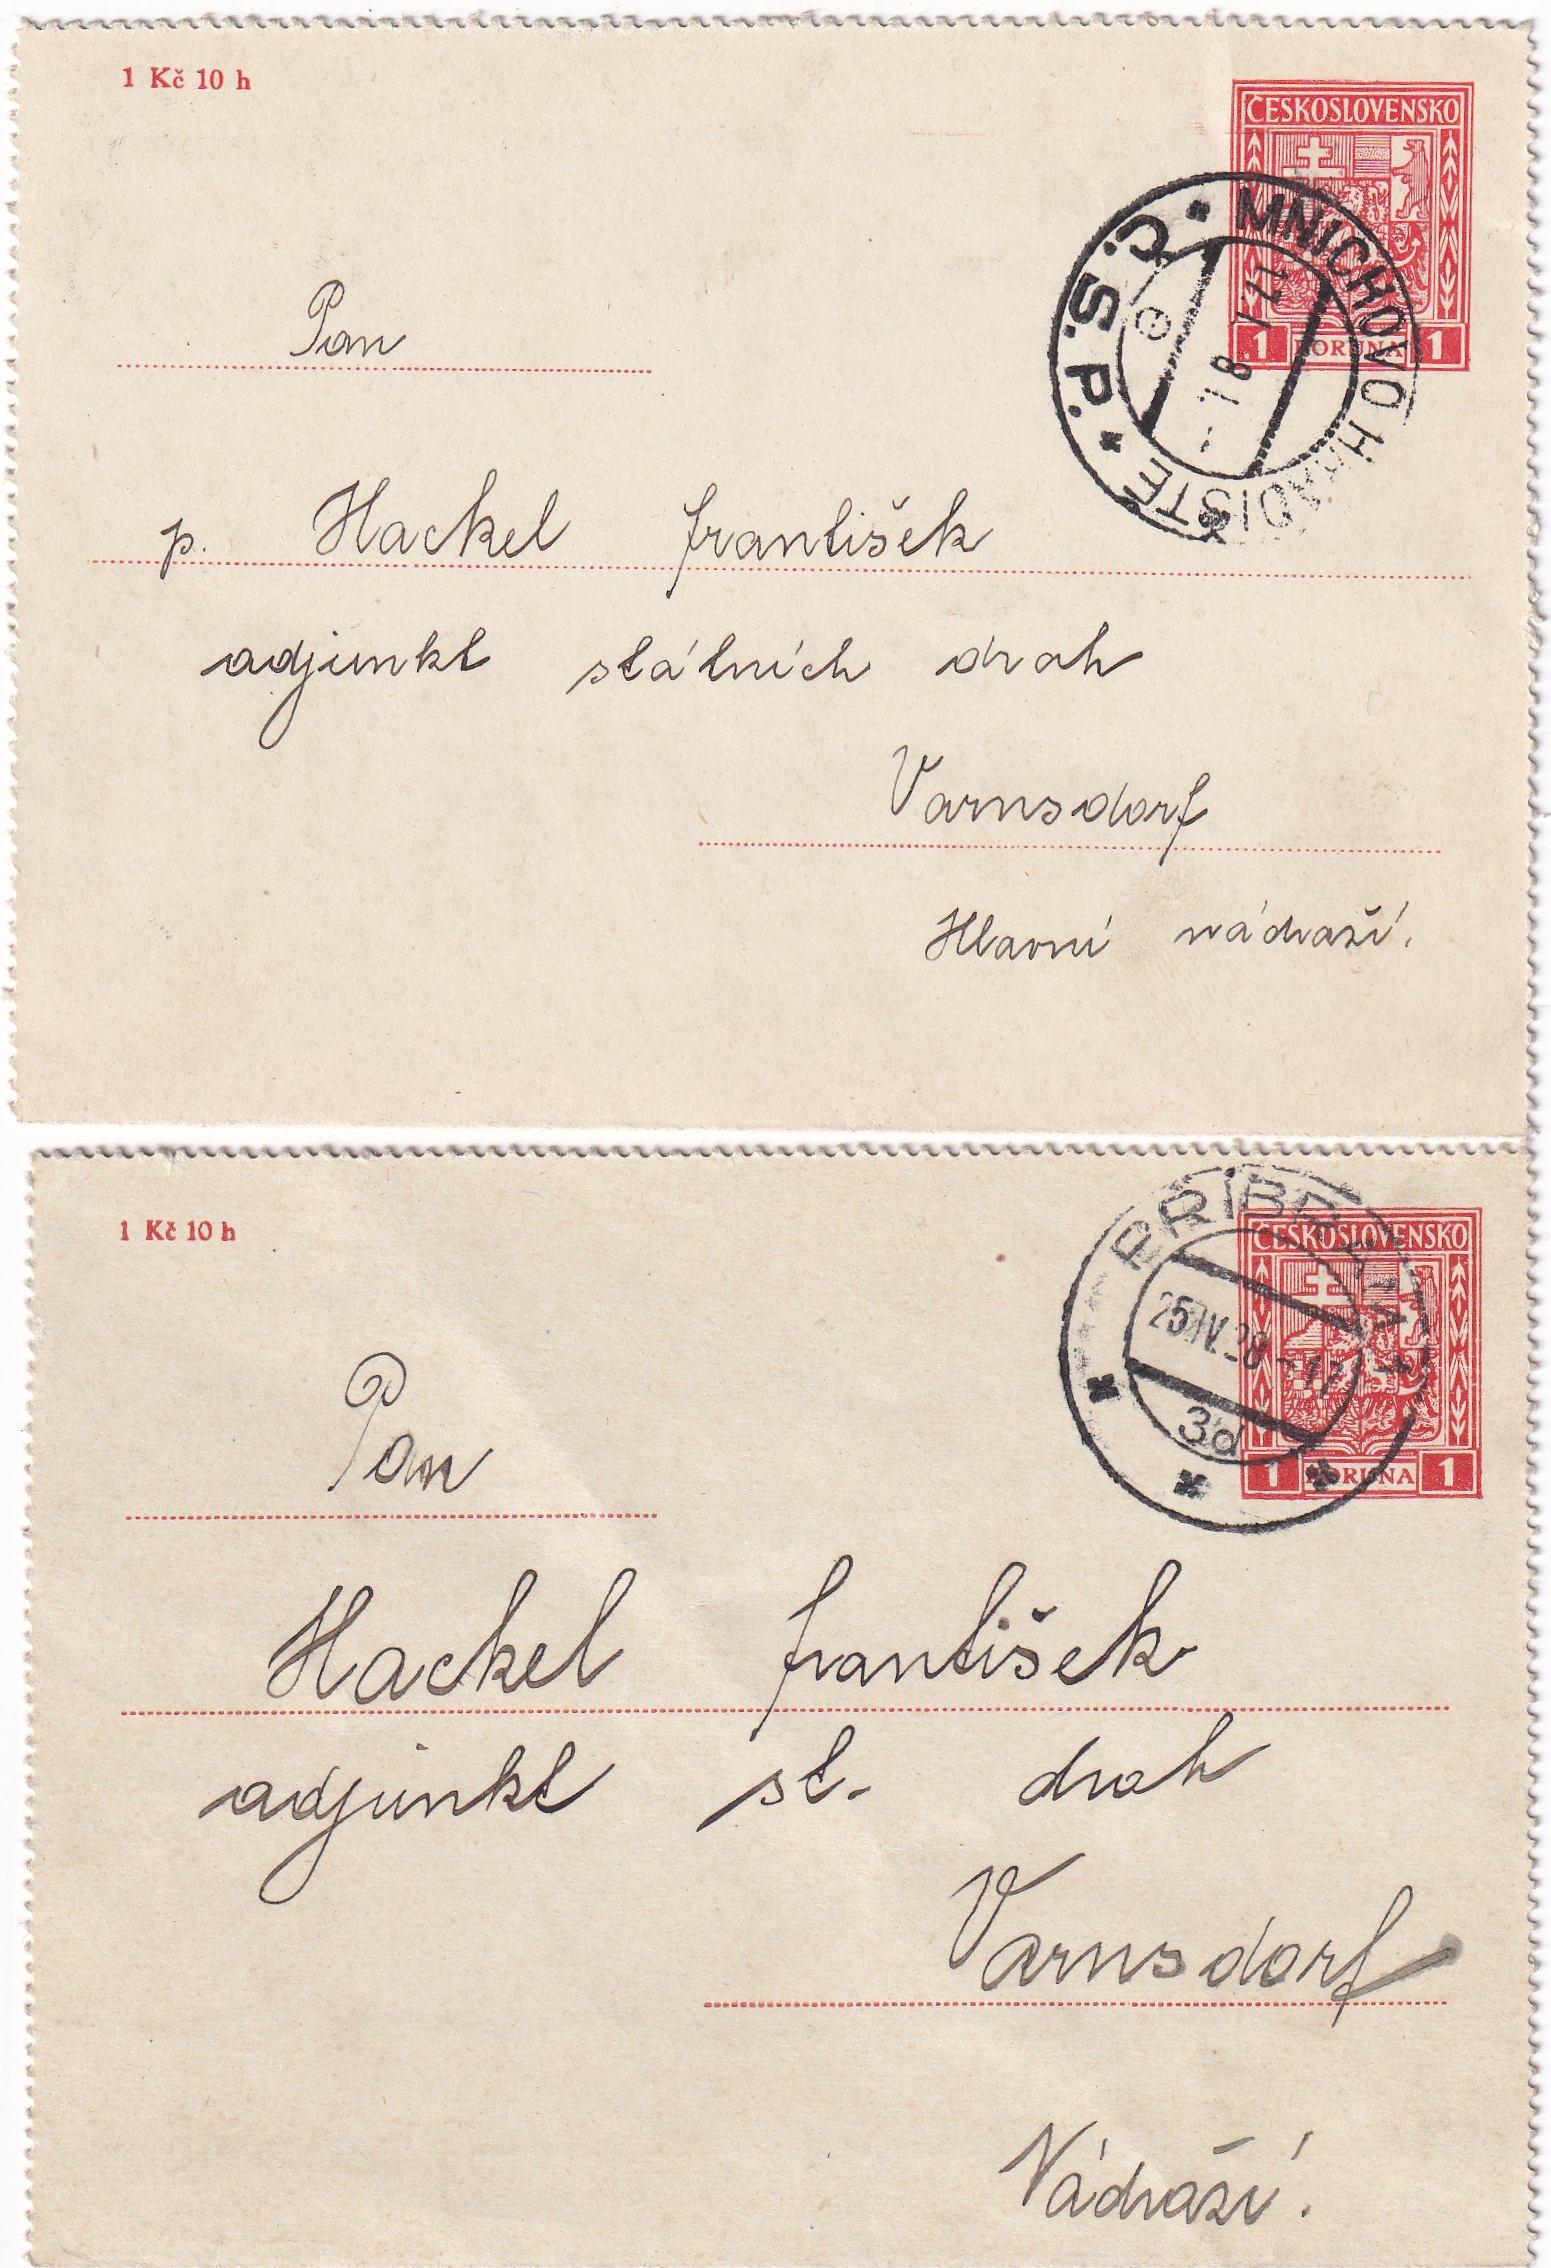 1 Kč 10 h
ČESKOSLOVENSKO
1 KORUNA 1
MNICHOVO HRADIŠTĚ
Č.S.P.
Pan
p. Hackel František
adjunkt státních drah
Varnsdorf
Hlavní nádraží.
1 Kč 10 h
ČESKOSLOVENSKO
1 KORUNA 1
PŘÍBRAM
25.IV.38.-17
3d
Pan
Hackel František
adjunkt st. drah
Varnsdorf
Nádraží.